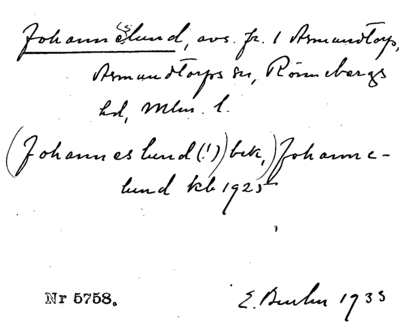 Johann(es)lund, avs. fr. 1 Asmundtorp,
Asmundtorps sn, Rönnebergs
hd, Mlm. l.
(Johanneslund(!)) bek,) Johanne-
lund kb 1925
Nr 5758.
E. 1933